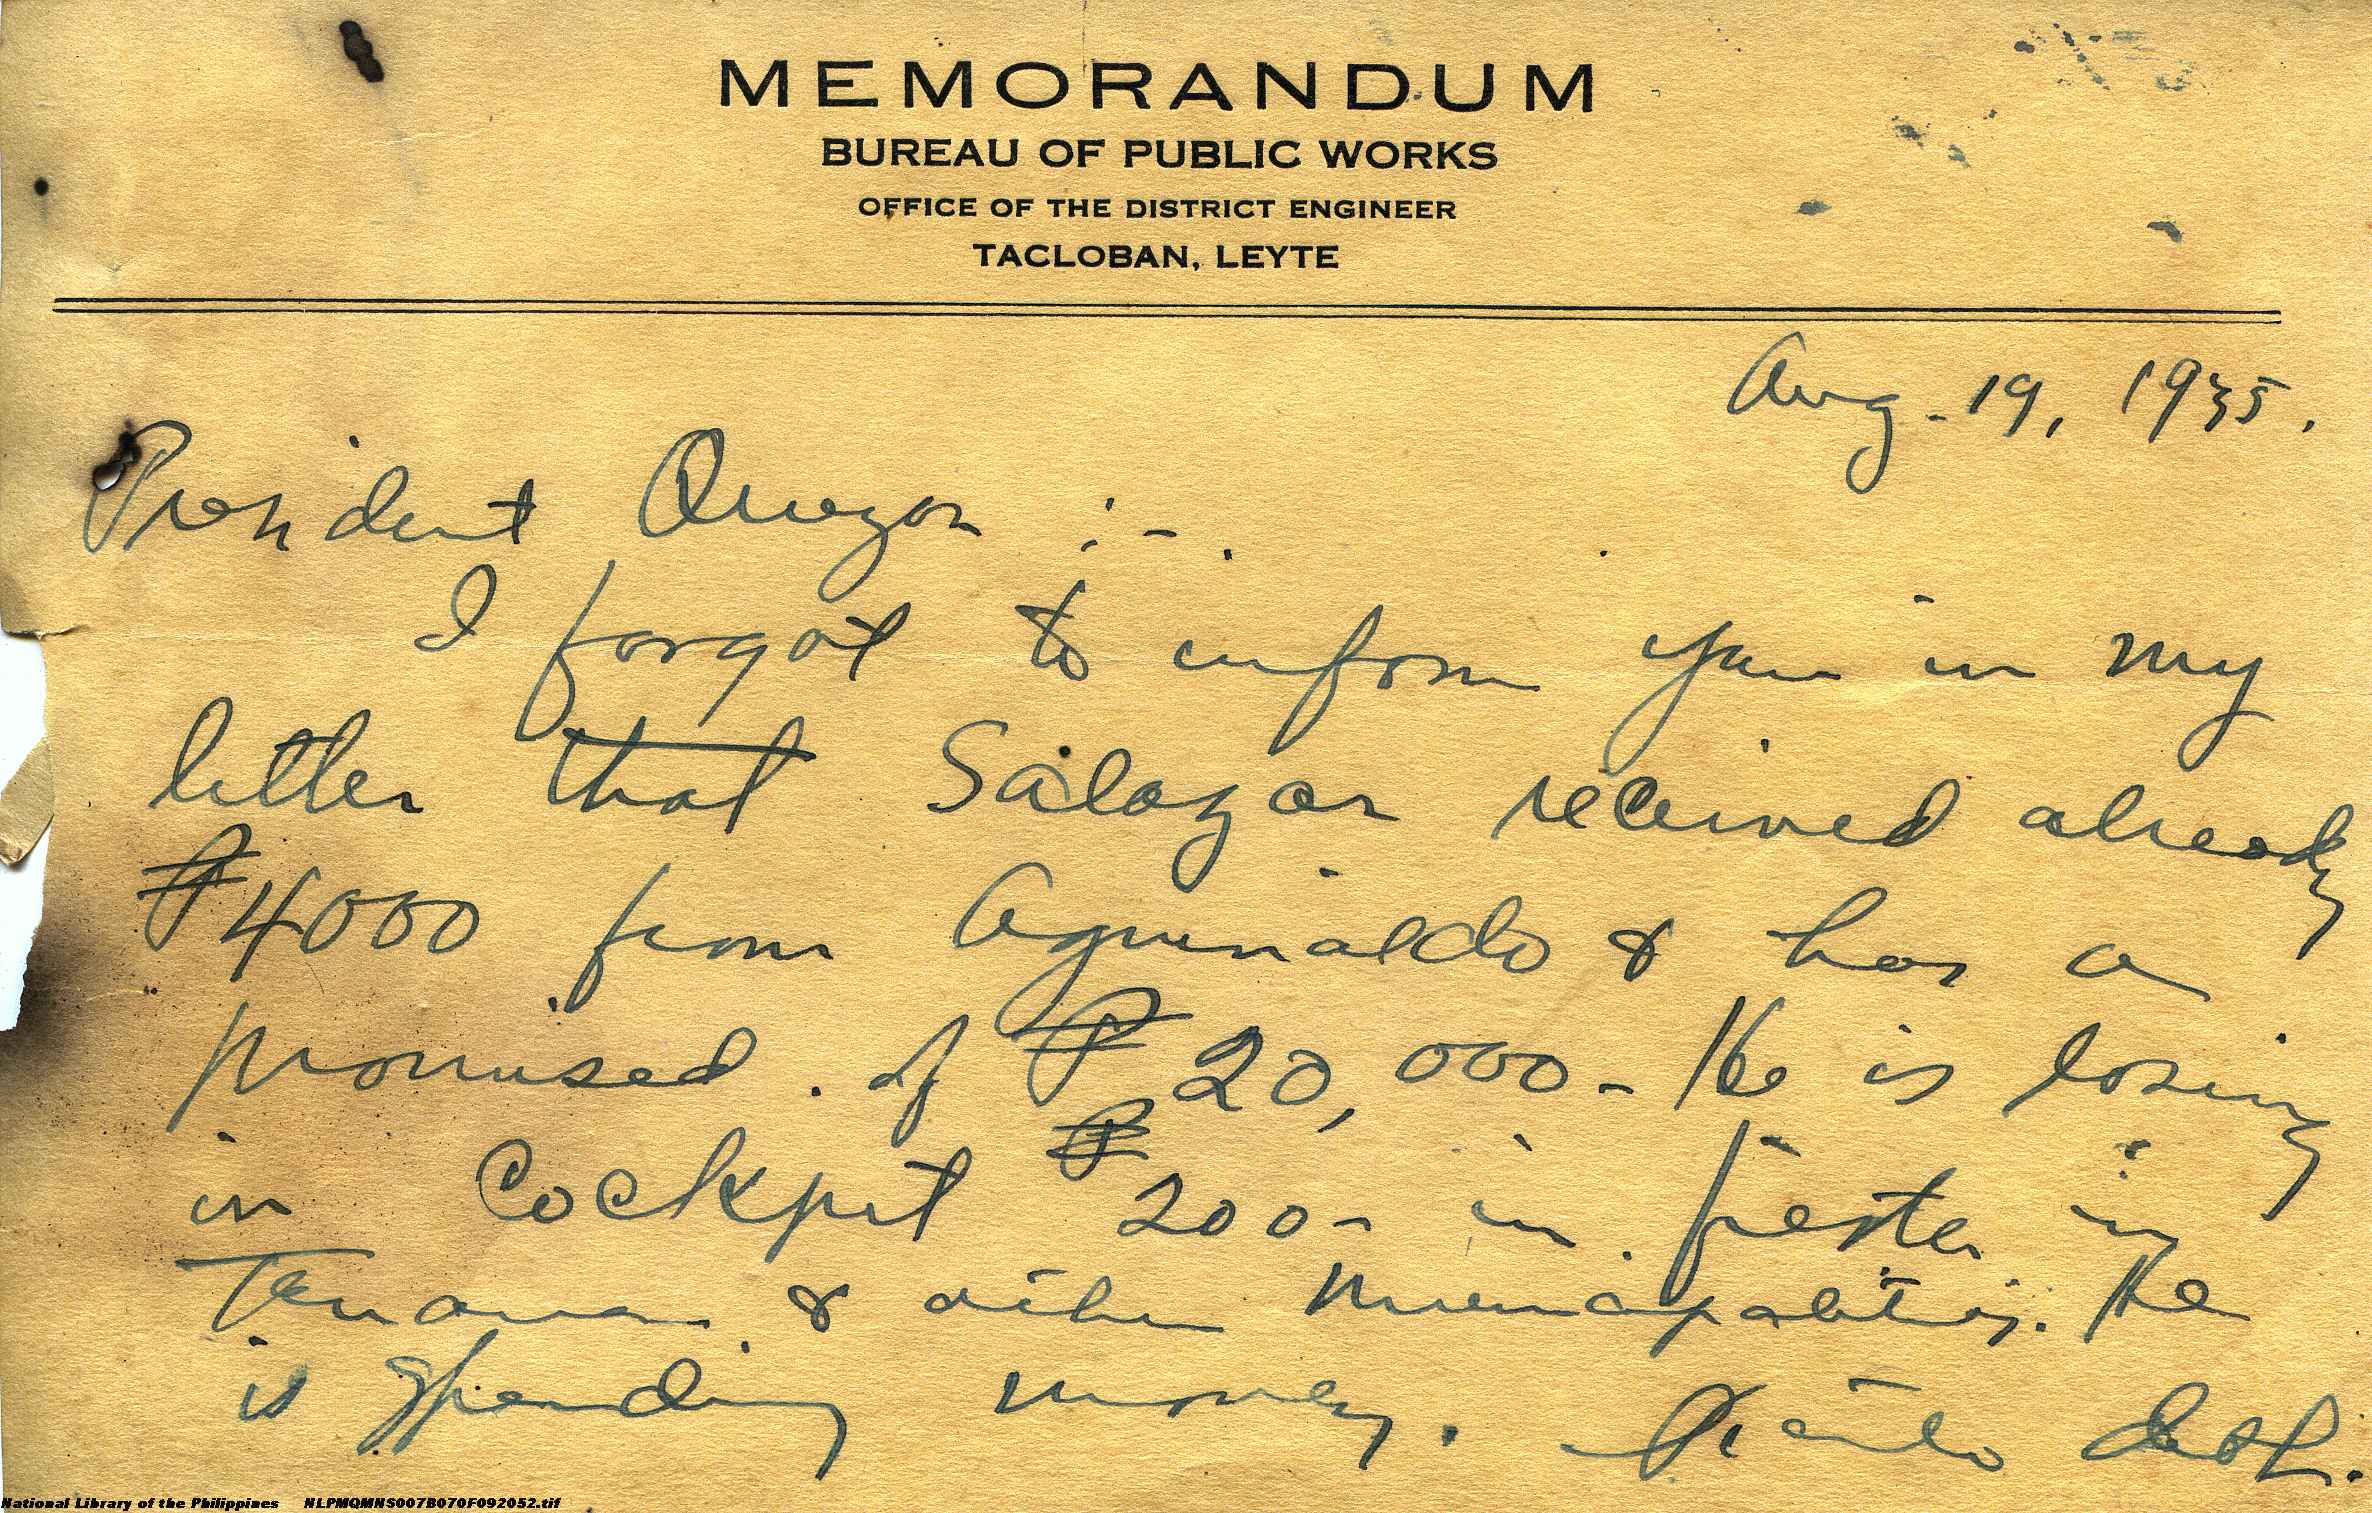 MEMORANDUM
BUREAU OF PUBLIC WORKS
OFFICE OF THE DISTRICT ENGINEER
TACLOBAN, LEYTE
Aug. 19, 1935.
President Quezon :-
I forgot to inform you in my
letter that Salazar received already
₱4000 from Aguinaldo & has a
promised of ₱20,000- He is losing
in Cockpit ₱200- in fiesta in
Tanauan & other Municipalities. He
is spending money.
National Library of the Philippines NLPMQMNS007B070F092052.tif